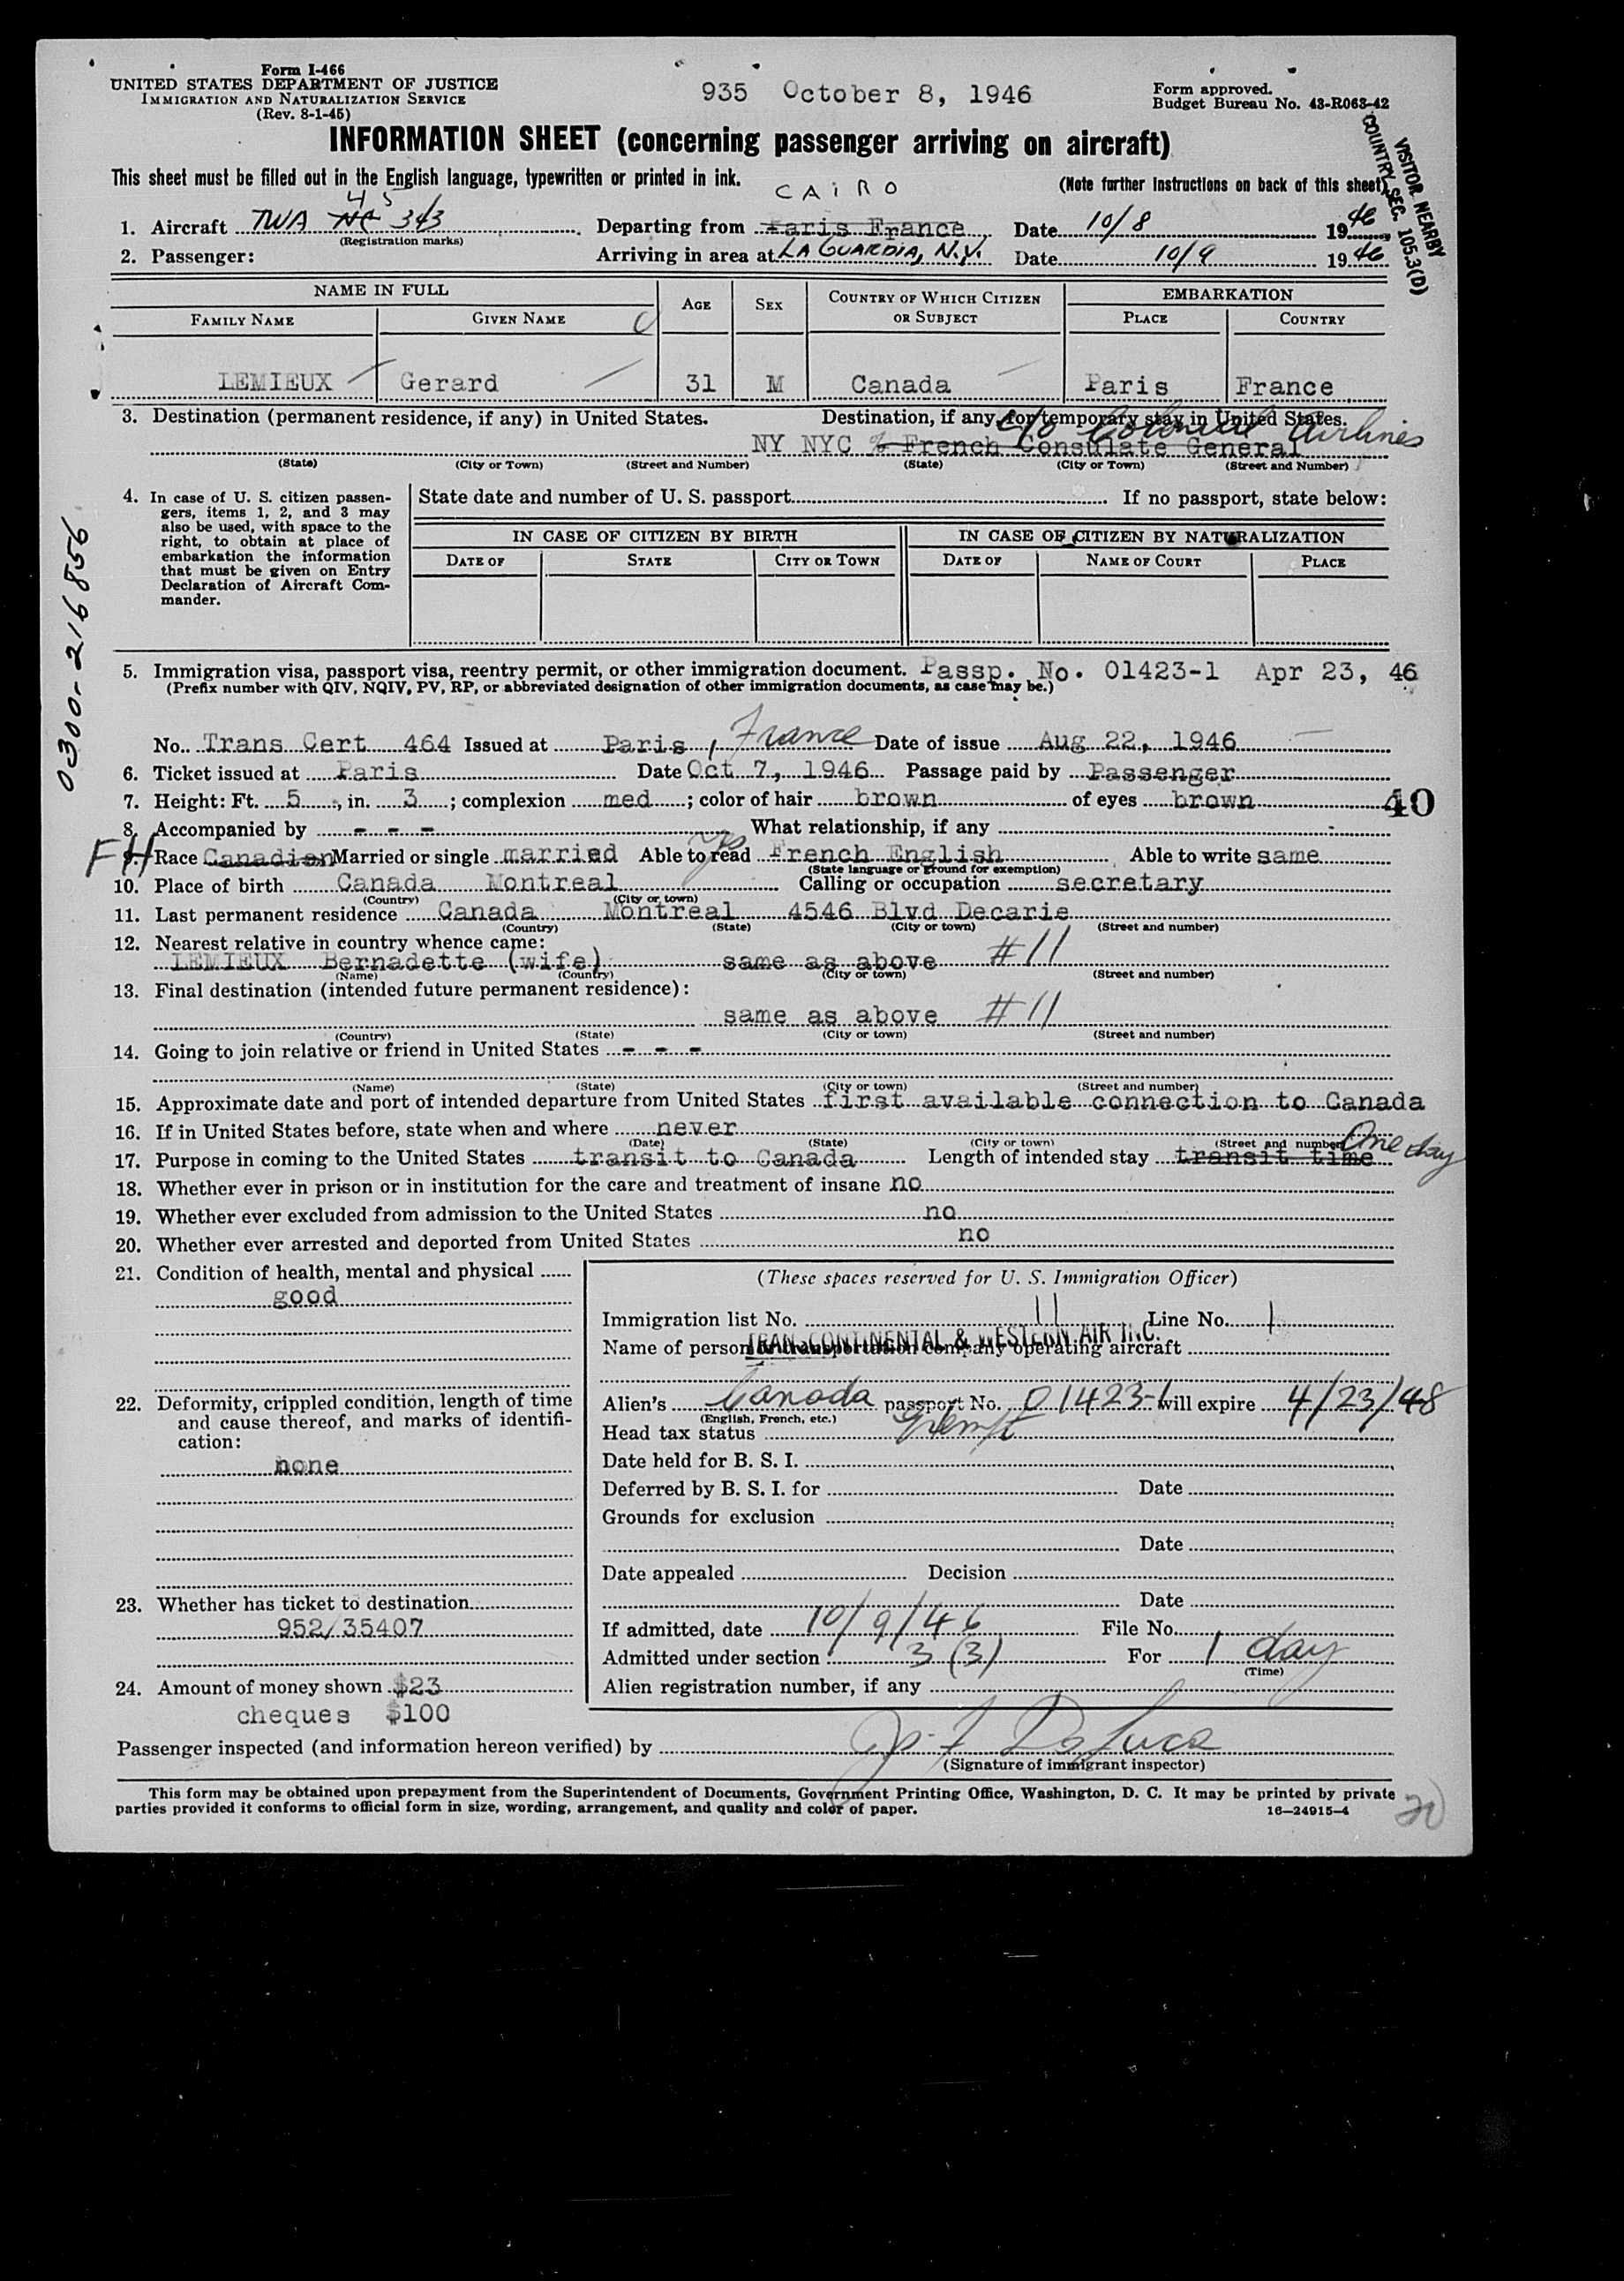 Form I-466
UNITED STATES DEPARTMENT OF JUSTICE
IMMIGRATION AND NATURALIZATION SERVICE
(Rev. 8-1-45)
935 October 8, 1946
Form approved.
Budget Bureau No. 43-R063-42
VISITOR NEARBY
COUNTRY, SEC. 105.3(D)
INFORMATION SHEET (concerning passenger arriving on aircraft)
This sheet must be filled out in the English language, typewritten or printed in ink.
(Note further instructions on back of this sheet)
CAIRO
45
1. Aircraft TWA NC 343 Departing from Paris France Date 10/8 1946
(Registration marks)
2. Passenger: Arriving in area at LA GUARDIA, N.Y. Date 10/9 1946
NAME IN FULL AGE SEX COUNTRY OF WHICH CITIZEN OR SUBJECT EMBARKATION
FAMILY NAME GIVEN NAME PLACE COUNTRY
LEMIEUX Gerard 31 M Canada Paris France
3. Destination (permanent residence, if any) in United States. Destination, if any, for temporary stay in United States.
c/o Colonial Airlines
NY NYC % French Consulate General
(State) (City or Town) (Street and Number) (State) (City or Town) (Street and Number)
4. In case of U. S. citizen passengers, items 1, 2, and 3 may also be used, with space to the right, to obtain at place of embarkation the information that must be given on Entry Declaration of Aircraft Commander.
State date and number of U. S. passport If no passport, state below:
IN CASE OF CITIZEN BY BIRTH IN CASE OF CITIZEN BY NATURALIZATION
DATE OF STATE CITY OR TOWN DATE OF NAME OF COURT PLACE
0300-216856
5. Immigration visa, passport visa, reentry permit, or other immigration document. Passp. No. 01423-1 Apr 23, 46
(Prefix number with QIV, NQIV, PV, RP, or abbreviated designation of other immigration documents, as case may be.)
No. Trans Cert 464 Issued at Paris, France Date of issue Aug 22, 1946
6. Ticket issued at Paris Date Oct 7, 1946 Passage paid by Passenger
7. Height: Ft. 5, in. 3; complexion med; color of hair brown of eyes brown
40
8. Accompanied by - - - What relationship, if any
FH 9. Race Canadian Married or single married Able to read yes French English Able to write same
(State language or ground for exemption)
10. Place of birth Canada Montreal Calling or occupation secretary
(Country) (City or town)
11. Last permanent residence Canada Montreal 4546 Blvd Decarie
(Country) (State) (City or town) (Street and number)
12. Nearest relative in country whence came:
LEMIEUX Bernadette (wife) same as above #11
(Name) (Country) (City or town) (Street and number)
13. Final destination (intended future permanent residence):
same as above #11
(Country) (State) (City or town) (Street and number)
14. Going to join relative or friend in United States - - -
(Name) (State) (City or town) (Street and number)
15. Approximate date and port of intended departure from United States first available connection to Canada
16. If in United States before, state when and where never
(Date) (State) (City or town) (Street and number)
One day
17. Purpose in coming to the United States transit to Canada Length of intended stay transit time
18. Whether ever in prison or in institution for the care and treatment of insane no
19. Whether ever excluded from admission to the United States no
20. Whether ever arrested and deported from United States no
21. Condition of health, mental and physical
good
22. Deformity, crippled condition, length of time
and cause thereof, and marks of identification:
none
23. Whether has ticket to destination
952/35407
24. Amount of money shown $23
cheques $100
(These spaces reserved for U. S. Immigration Officer)
Immigration list No. 11 Line No. 1
TRANSCONTINENTAL & WESTERN AIR INC.
Name of person or transportation company operating aircraft
Alien's Canada passport No. 01423-1 will expire 4/23/48
(English, French, etc.)
Head tax status Exempt
Date held for B. S. I.
Deferred by B. S. I. for Date
Grounds for exclusion
Date
Date appealed Decision
Date
If admitted, date 10/9/46 File No.
Admitted under section 3 (3) For 1 day
(Time)
Alien registration number, if any
Passenger inspected (and information hereon verified) by
(Signature of immigrant inspector)
This form may be obtained upon prepayment from the Superintendent of Documents, Government Printing Office, Washington, D. C. It may be printed by private
parties provided it conforms to official form in size, wording, arrangement, and quality and color of paper. 16—24915-4
20